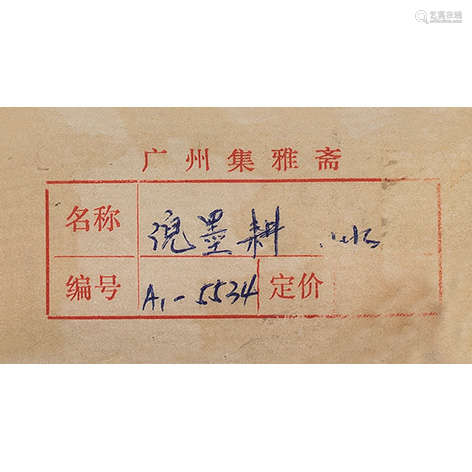 广州集雅斋
名称 倪墨耕
编号 A1-5534 定价